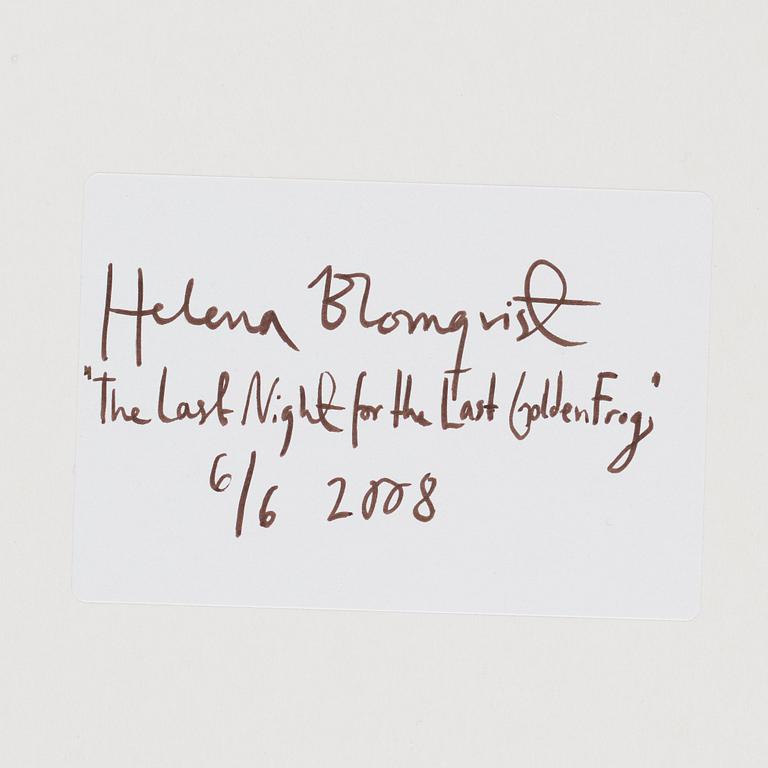 Helena Blomqvist
"The Last Night for the Last Golden Frog"
6/6 2008